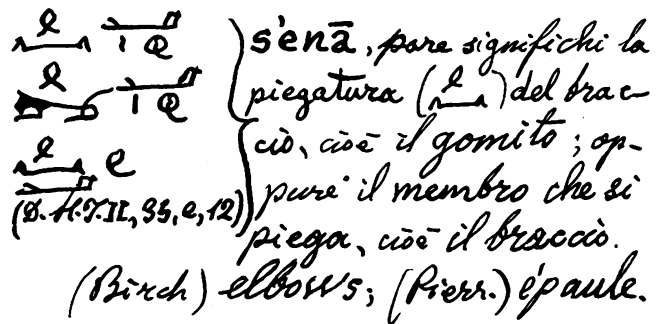 s'enā, pare significhi la
piegatura ( ) del brac-
cio, cioè il gomito; op-
pure il membro che si
(D.H.T.II, 35, e, 12)
piega, cioè il braccio.
(Birch) elbows; (Pierr.) épaule.